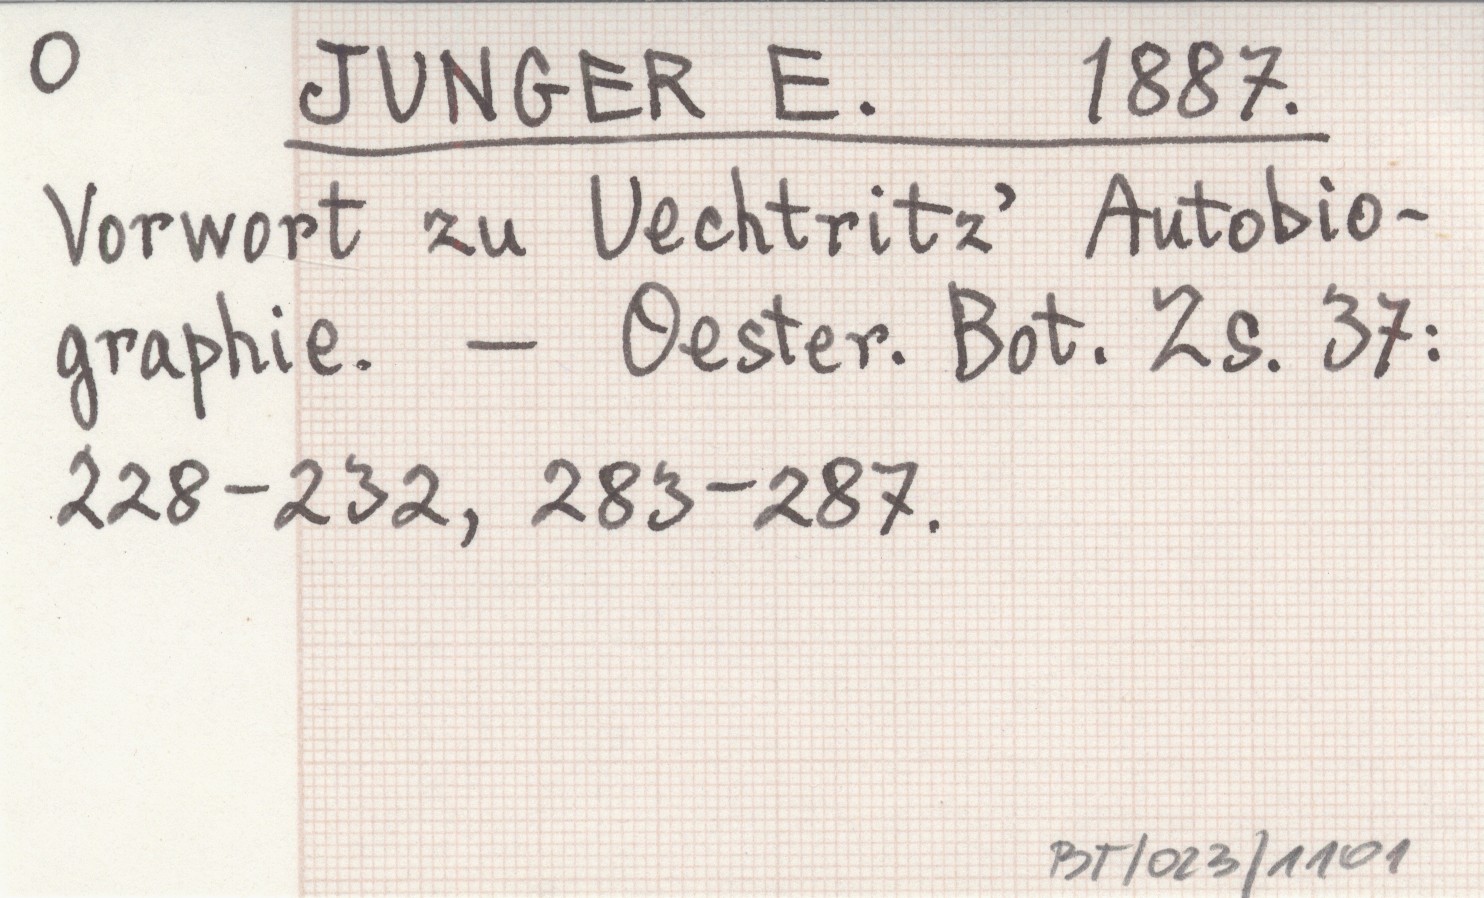 O JUNGER E. 1887.
Vorwort zu Uechtritz' Autobio-
graphie. — Oester. Bot. Zs. 37:
228-232, 283-287.
BT/023/1101